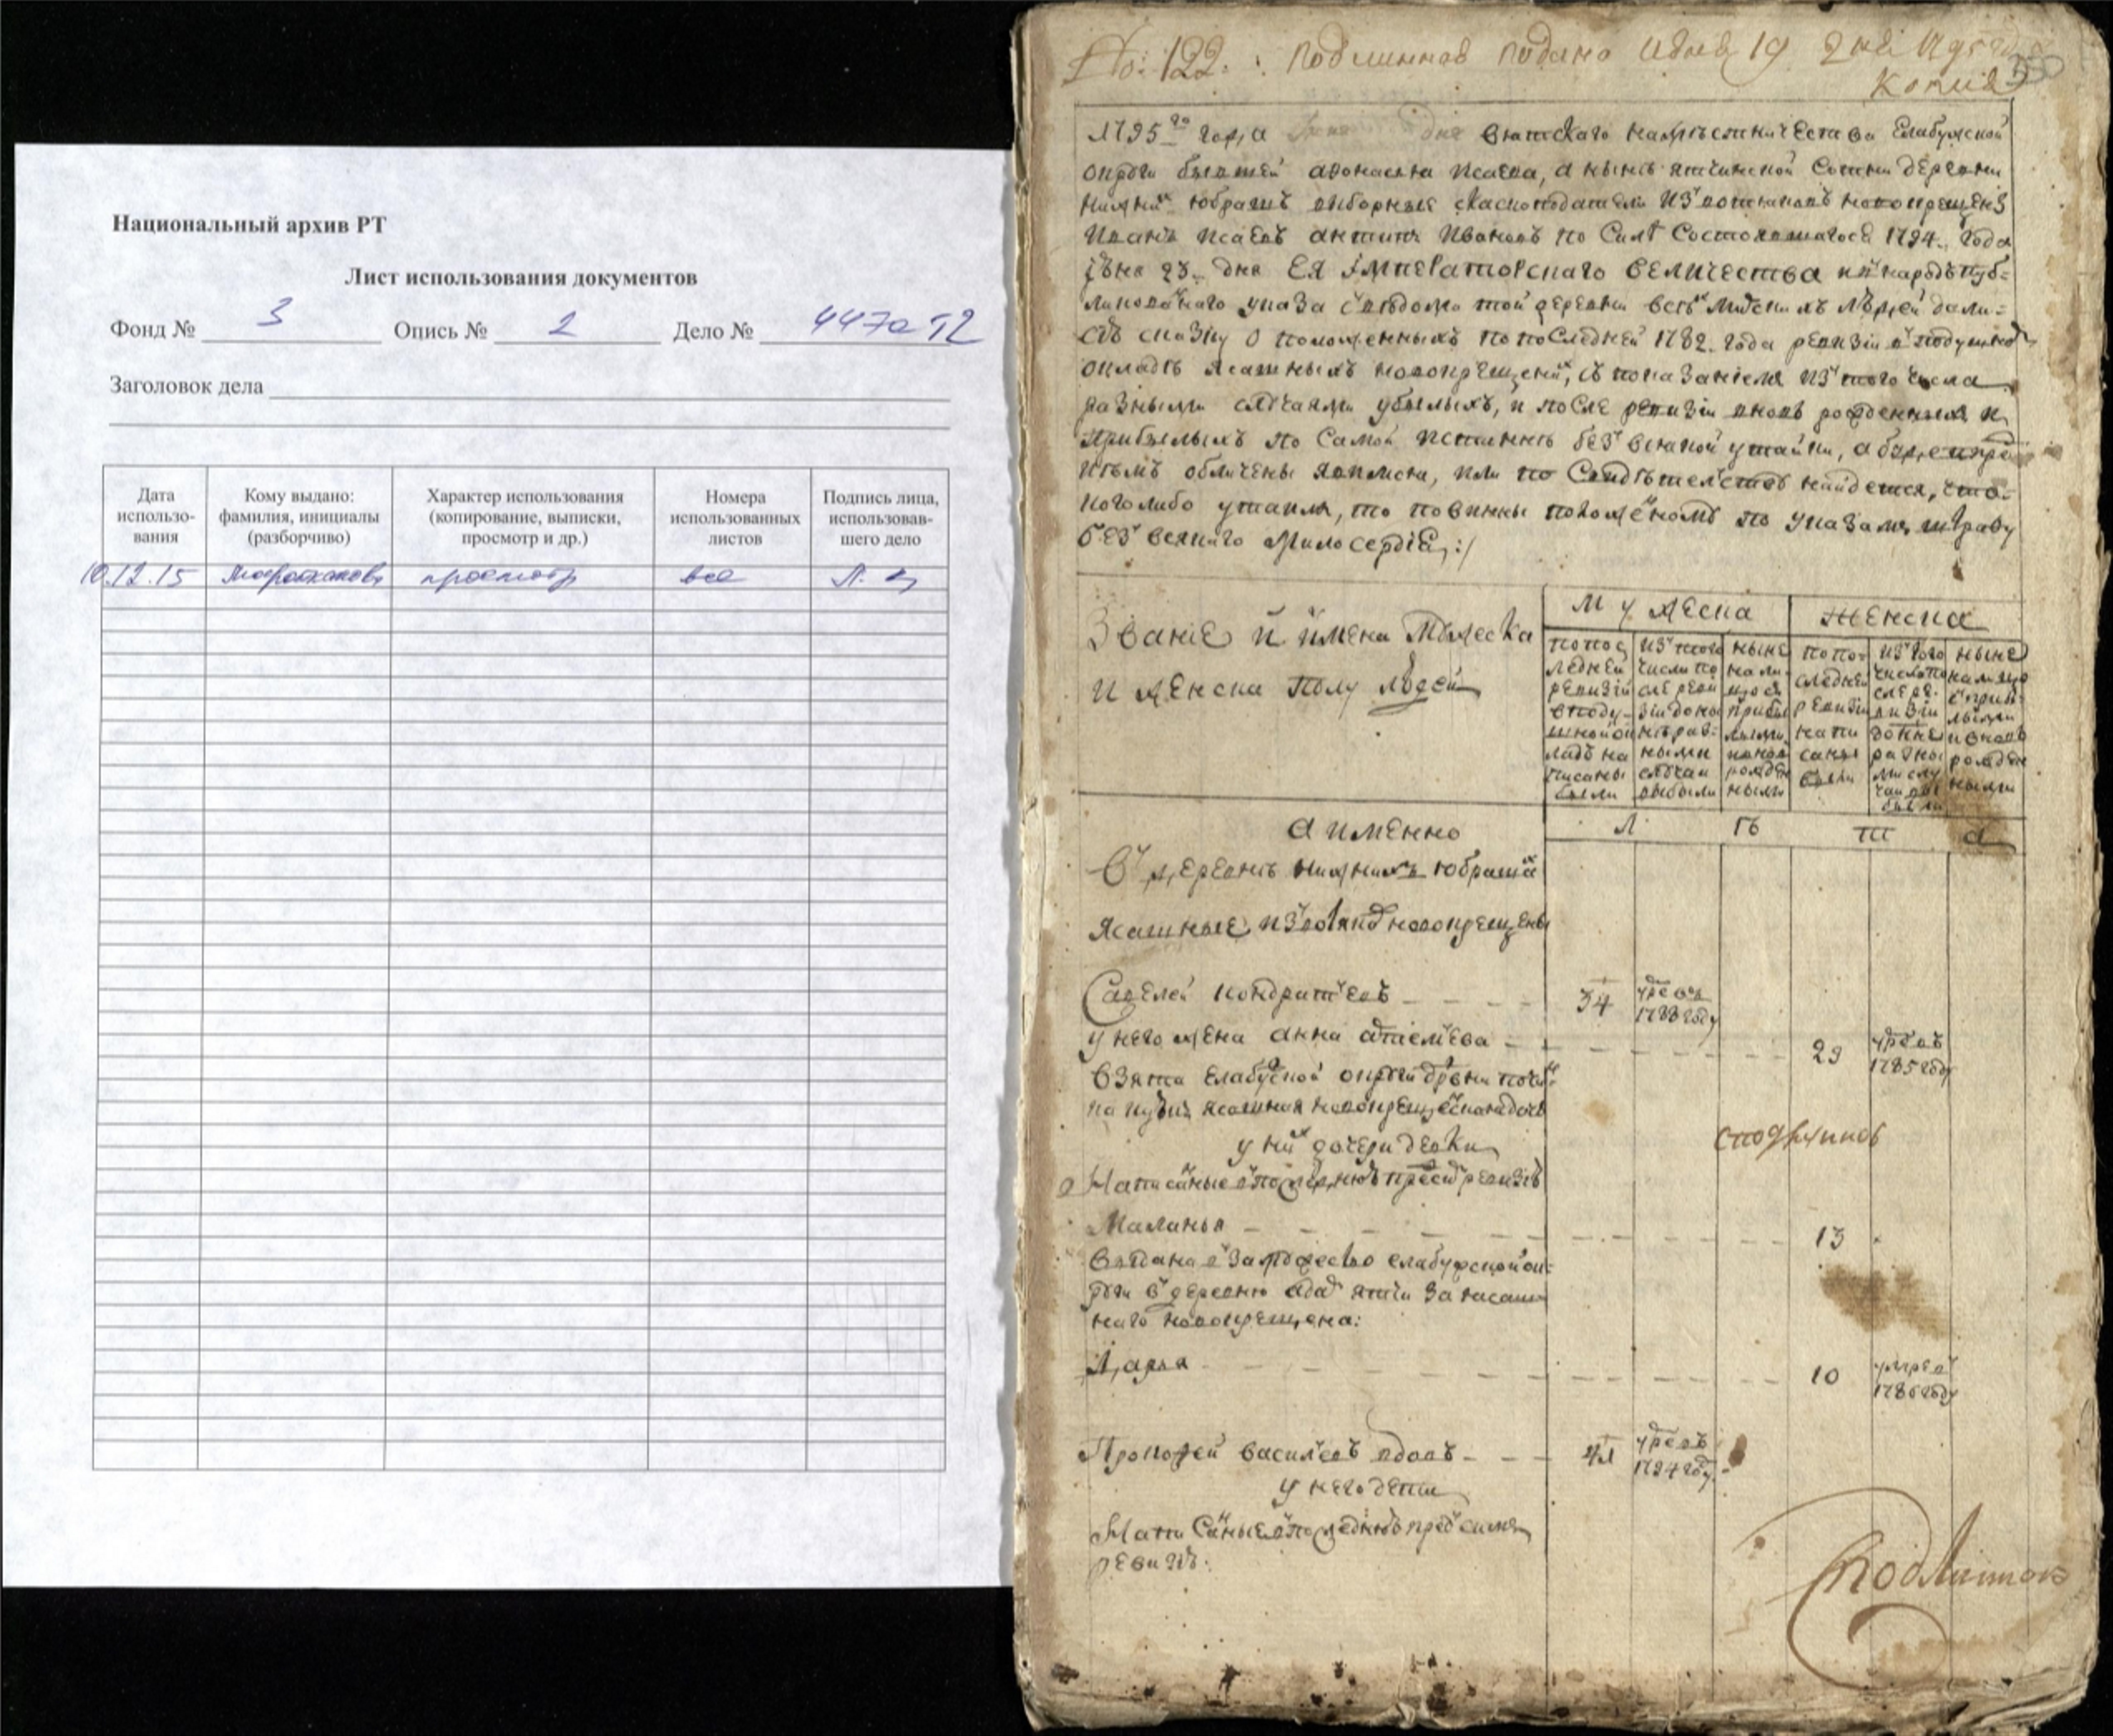 Национальный архив РТ
Лист использования документов
Фонд № 3 Опись № 2 Дело № 447а Т2
Заголовок дела
Дата использо-вания
Кому выдано: фамилия, инициалы (разборчиво)
Характер использования (копирование, выписки, просмотр и др.)
Номера использованных листов
Подпись лица, использовав-шего дело
10.12.15 просмотр все
№: 122. подлинная подано июня 19 дня 1795 года
копия
1795го года дня вятскаго намѣстничества Елабужской
округи бывшей афонасья исаева, а нынѣ ятчинской сотни деревни
нижних юбрашъ выборные скаскоподатели из вотяковъ новокрещены
Иванъ Исаевъ антипъ Ивановъ по силѣ состоявшагося 1794. года
июня 23. дня ЕЯ ИМПЕРАТОРСКАГО ВЕЛИЧЕСТВА в народъ пуб-
ликованнаго указа с вѣдома той деревни всѣх мирскихъ людей дали
сїю скаску о положенныхъ по последней 1782. года ревизии в подушной
окладъ ясашныхъ новокрещен, с показанием из того числа
разными случаями убылыхъ, и после ревизии вновь рожденныхъ и
прибылыхъ по самой истиннѣ без всякой утайки, а буде
кѣмъ обличены явимся, или по свидѣтелству найдется, что
кого либо утаили, то повинны положеному по указамъ штрафу
без всякаго милосердїя :/
Званїе и имена мужеска
и женска полу людей
мужеска
женска
по последней ревизии в подушной оклад написаны были
из того числа после ревизии до ныне разными случаи выбыли
ныне на лицо с прибылыми и вновь рожденными
по последней ревизии написаны были
из того числа после ревизии до ныне разными случаи выбыли
ныне на лицо с прибылыми и вновь рожденными
а именно
л ѣ т а
В деревнѣ нижнихъ юбрашах
ясашные из вотяков новокрещены
Савелей кондратьевъ 34 умре в 1788 году
у него жена анна 29 умре въ 1785 году
взята елабужской округи
у них дочери девки
Написанные в последнюю пред сим ревизию
Маланья 13
выдана в замужество елабужской ок-
руги в деревню за ясаш-
наго новокрещена:
Дарья 10 умре в 1786 году
Прокофей васильевъ вдовъ 41 умре въ 1794 году
у него дети
Написанные в последнюю пред сим
ревизию.